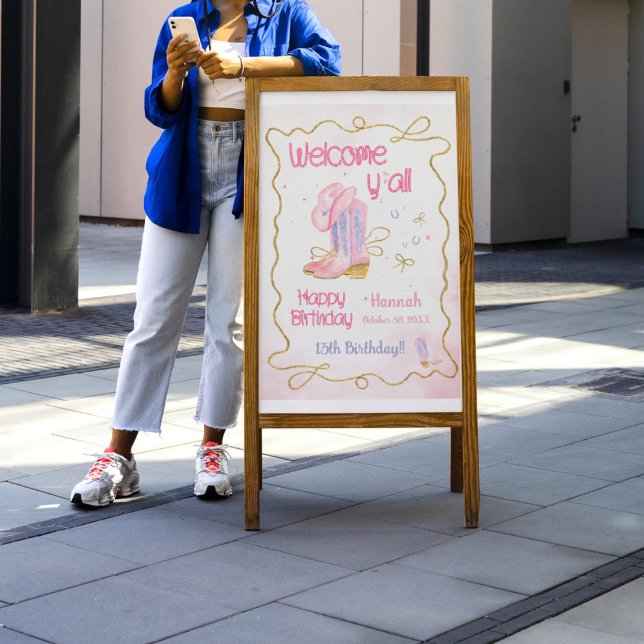 Welcome
y'all
Happy
Birthday
Hannah
October 30, 20XX
13th Birthday!!